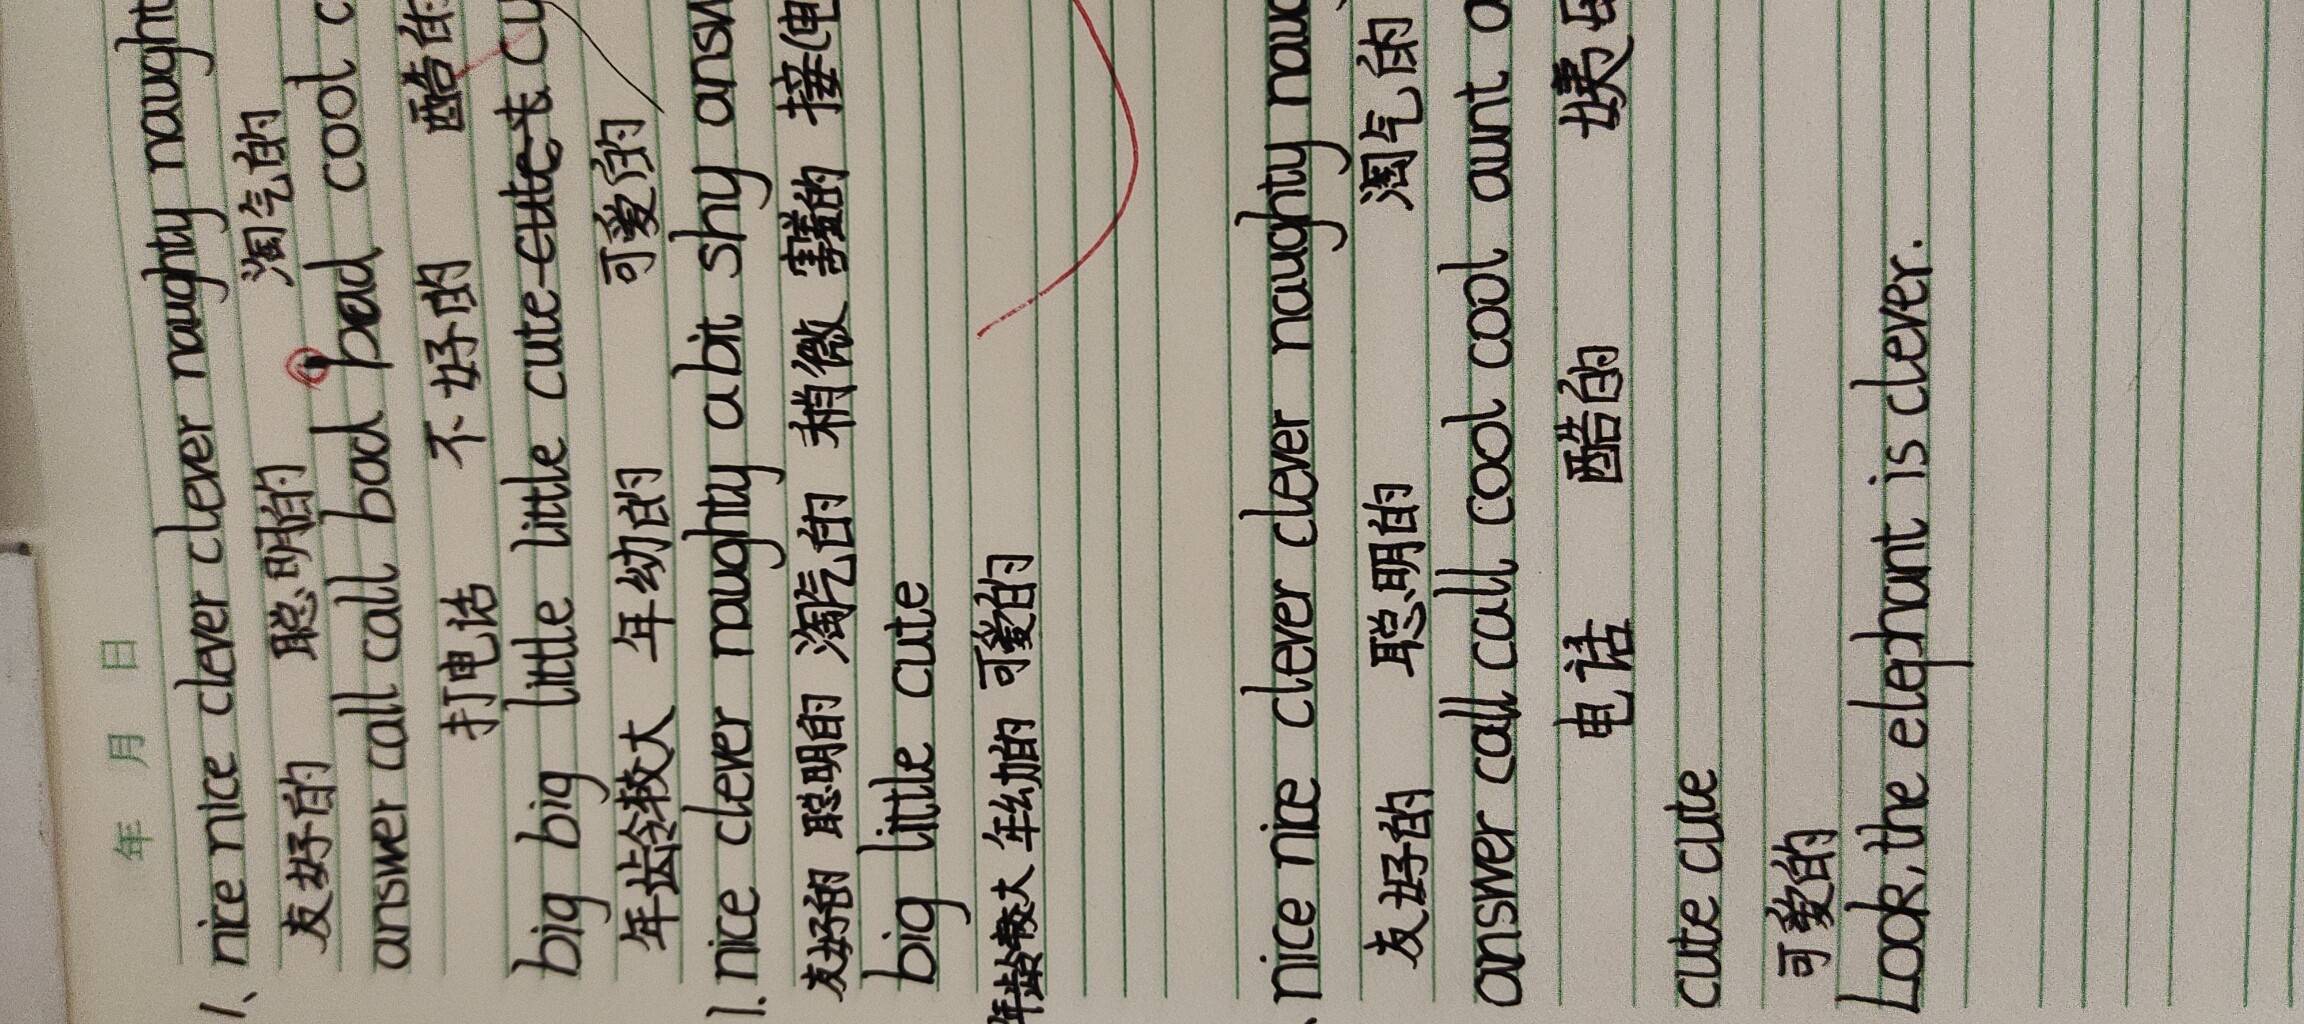 年 月 日
1、nice nice clever clever naughty naught
友好的 聪明的 淘气的
answer call call bad bad cool
打电话 不好的 酷的
big big little little cute cute
年龄较大 年幼的 可爱的
1. nice clever naughty a bit shy answ
友好的 聪明的 淘气的 稍微 害羞的 接(电
big little cute
年龄较大 年幼的 可爱的
、nice nice clever clever naughty nau
友好的 聪明的 淘气的
answer call call cool cool aunt a
电话 酷的 姨母
cute cute
可爱的
Look, the elephant is clever.